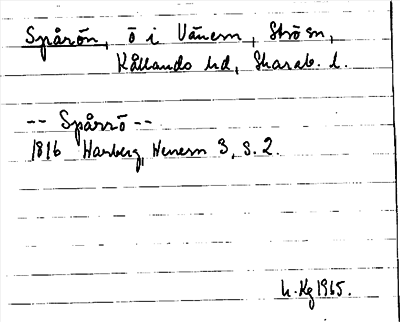 Spårön, ö i Vänern, Strö sn,
Kållands hd, Skarab. l.
-- Spårrö --
1816 Harberg, Wenern 3, S. 2.
h. Kg 1965.